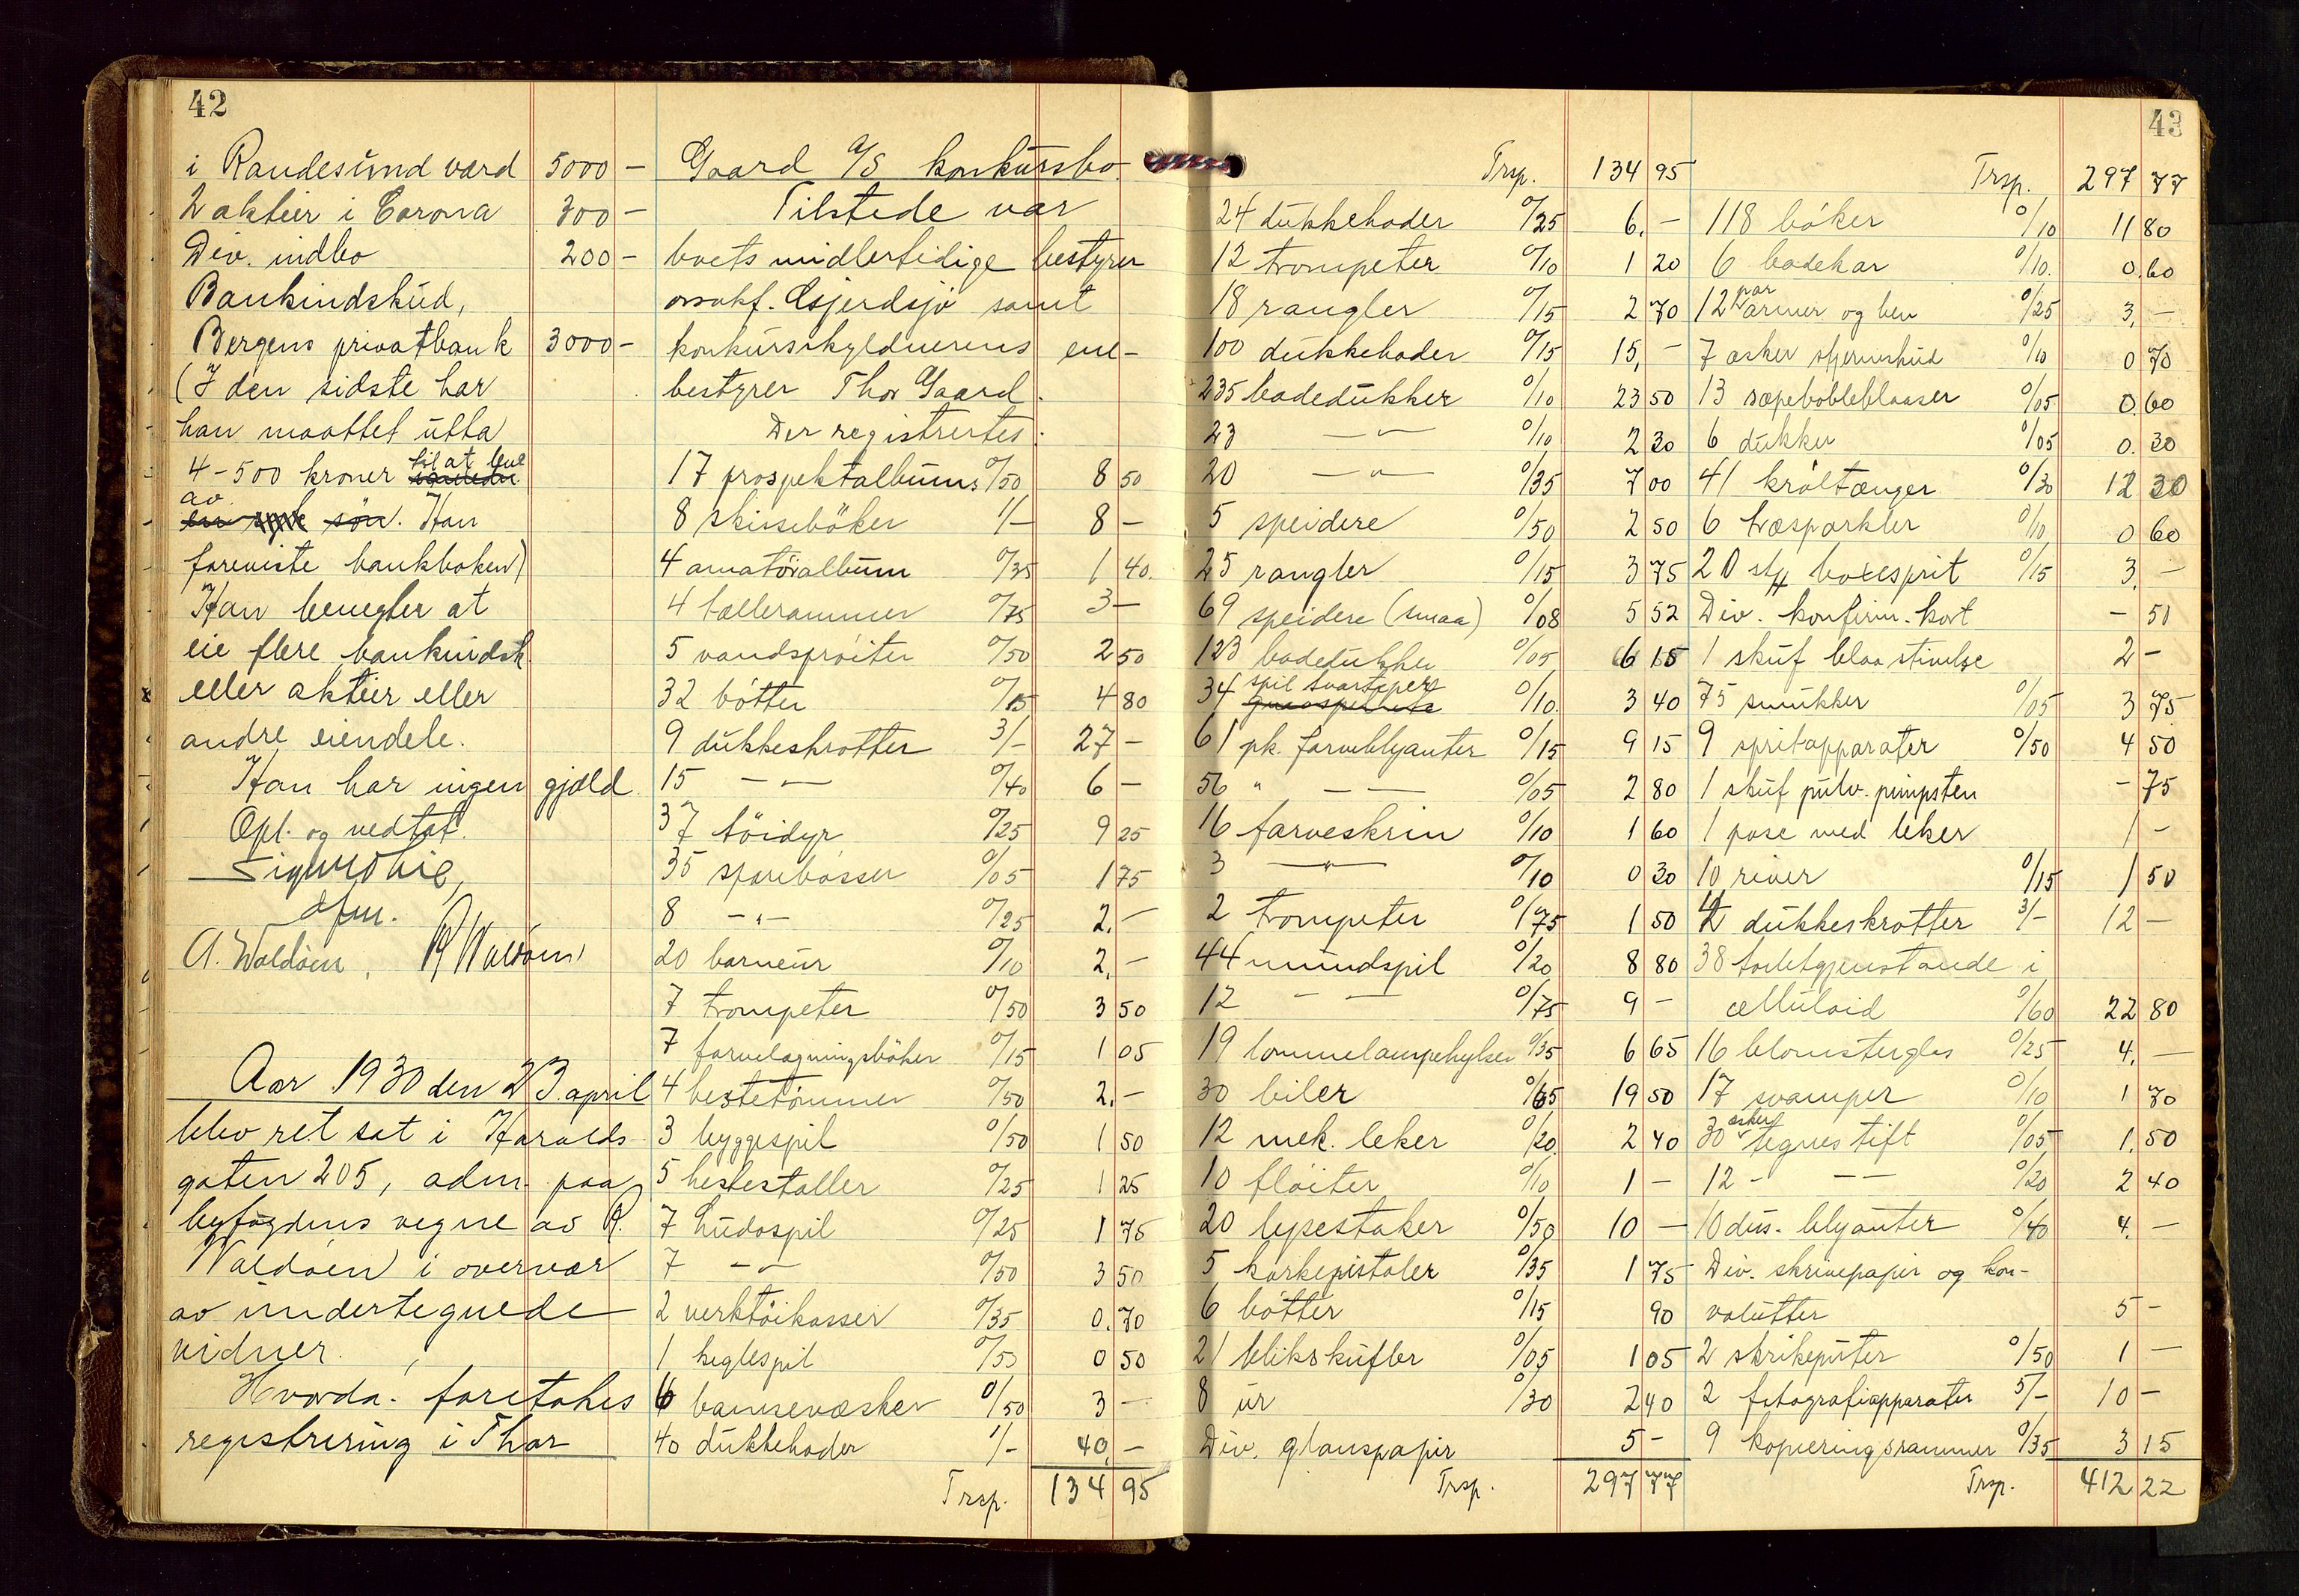 42
i Randesund værd 5000 -
2 aktier i Corona 300 -
Div. indbo 200 -
Bankindskud,
Bergens privatbank 3000 -
(I den sidste har
han maattet utta
4-500 kroner til at leve
av. Han
foreviste bankboken)
Han benegter at
eie flere bankindsk.
eller aktier eller
andre eiendele.
Han har ingen gjæld
Opl. og vedtat.
dfm.
A. Waldöen, R Waldöen
Aar 1930 den 23. april
blev ret sat i Haralds-
gaten 205, adm. paa
byfogdens vegne av R.
Waldöen i overvær
av undertegnede
vidner.
Hvorda: foretokes
registrering i Thor
Gaard A/S konkursbo.
Tilstede var
boets midlertidige bestyrer
o.r.sakf. Gjerdsjö samt
konkursskyldnerens ene-
bestyrer Thor Gaard.
Der registrertes:
17 prospektalbums 0/50 8 50
8 skisseböker 1/- 8 -
4 amatöralbum 0/35 1 40.
4 tællerammer 0/75 3 -
5 vandspröiter 0/50 2 50
32 bötter 0/15 4 80
9 dukkeskrotter 3/- 27 -
15 - " - 0/40 6 -
37 töidyr 0/25 9 25
35 sparebösser 0/05 1 75
8 - " - 0/25 2. -
20 barneur 0/10 2. -
7 trompeter 0/50 3 50
7 farvelagningsböker 0/15 1 05
4 hestetömmer 0/50 2. -
3 byggespil 0/50 1 50
5 hestestaller 0/25 1 25
7 Ludospil 0/25 1 75
7 - " - 0/50 3 50
2 verktöikasser 0/35 0. 70
1 keglespil 0/50 0 50
6 bamsevæsker 0/50 3 -
40 dukkehoder 1/- 40. -
Trsp. 134 95
Trsp. 134 95
24 dukkehoder 0/25 6. -
12 trompeter 0/10 1 20
18 rangler 0/15 2 70
100 dukkehoder 0/15 15, -
235 badedukker 0/10 23 50
23 - " - 0/10 2 30
20 - " - 0/35 7 00
5 speidere 0/50 2 50
25 rangler 0/15 3 75
69 speidere (smaa) 0/08 5 52
123 badedukker 0/05 6 15
34 spil Svarteper 0/10. 3 40
61 pk. farveblyanter 0/15 9 15
56 " - - 0/05 2 80
16 farveskrin 0/10 1 60
3 - " - 0/10 0 30
2 trompeter 0/75 1 50
44 mundspil 0/20 8 80
12 - - 0/75 9 -
19 lommelampehylser 0/35 6 65
30 biler 0/65 19 50
12 mek. leker 0/20. 2 40
10 flöiter 0/10 1 -
20 lysestaker 0/50 10 -
5 korkepistoler 0/35 1 75
6 bötter 0/15 90
21 blikskufler 0/05 1 05
8 ur 0/30 2 40
Div. glanspapir 5 -
Trsp. 297 77
43
Trsp. 297 77
118 böker 0/10 11 80
6 badekar 0/10. 0. 60
12 par armer og ben 0/25 3, -
7 æsker stjerneskud 0/10 0 70
13 sæpebobleblaaser 0/05 0. 60
6 dukker 0/05 0. 30
41 krölltænger 0/30 12 30
6 træsparkler 0/10 0 60
20 stk boxesprit 0/15 3. -
Div. konfirm. kort - 50
1 skuf blaa stivelse 2 -
75 smukker 0/05 3 75
9 spritapparater 0/50 4 50
1 skuf pulv. pimpsten - 75
1 pose med leker 1 -
10 river 0/15 1 50
4 dukkeskrotter 3/- 12 -
38 toiletgjenstande i
celluloid 0/60 22 80
16 blomsterglas 0/25 4. -
17 svamper 0/10 1 70
30 æsker tegnestift 0/05 1. 50
12 - - - 0/20 2 40
10 dus. blyanter 0/40 4. -
Div. skrivepapir og kon-
volutter 5 -
2 skrikeputer 0/50 1 -
2 fotografiapparater 5/- 10 -
9 kopieringsrammer 0/35 3 15
Trsp. 412 22